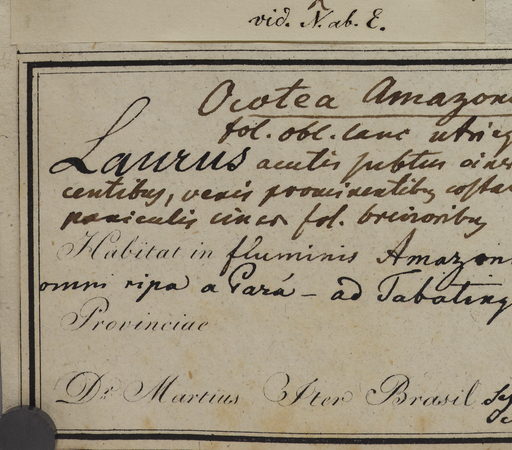 vid. N. ab. E.
Ocotea Amazon
fol. obl. lanc utrinq
Laurus acutis subtus ciner
centibus, venis prominentibus costa
paniculis ciner fol. brevioribus
Habitat in fluminis Amazon
omni ripa a Pará - ad Tabating
Provinciae
Dr. Martius Iter Brasil